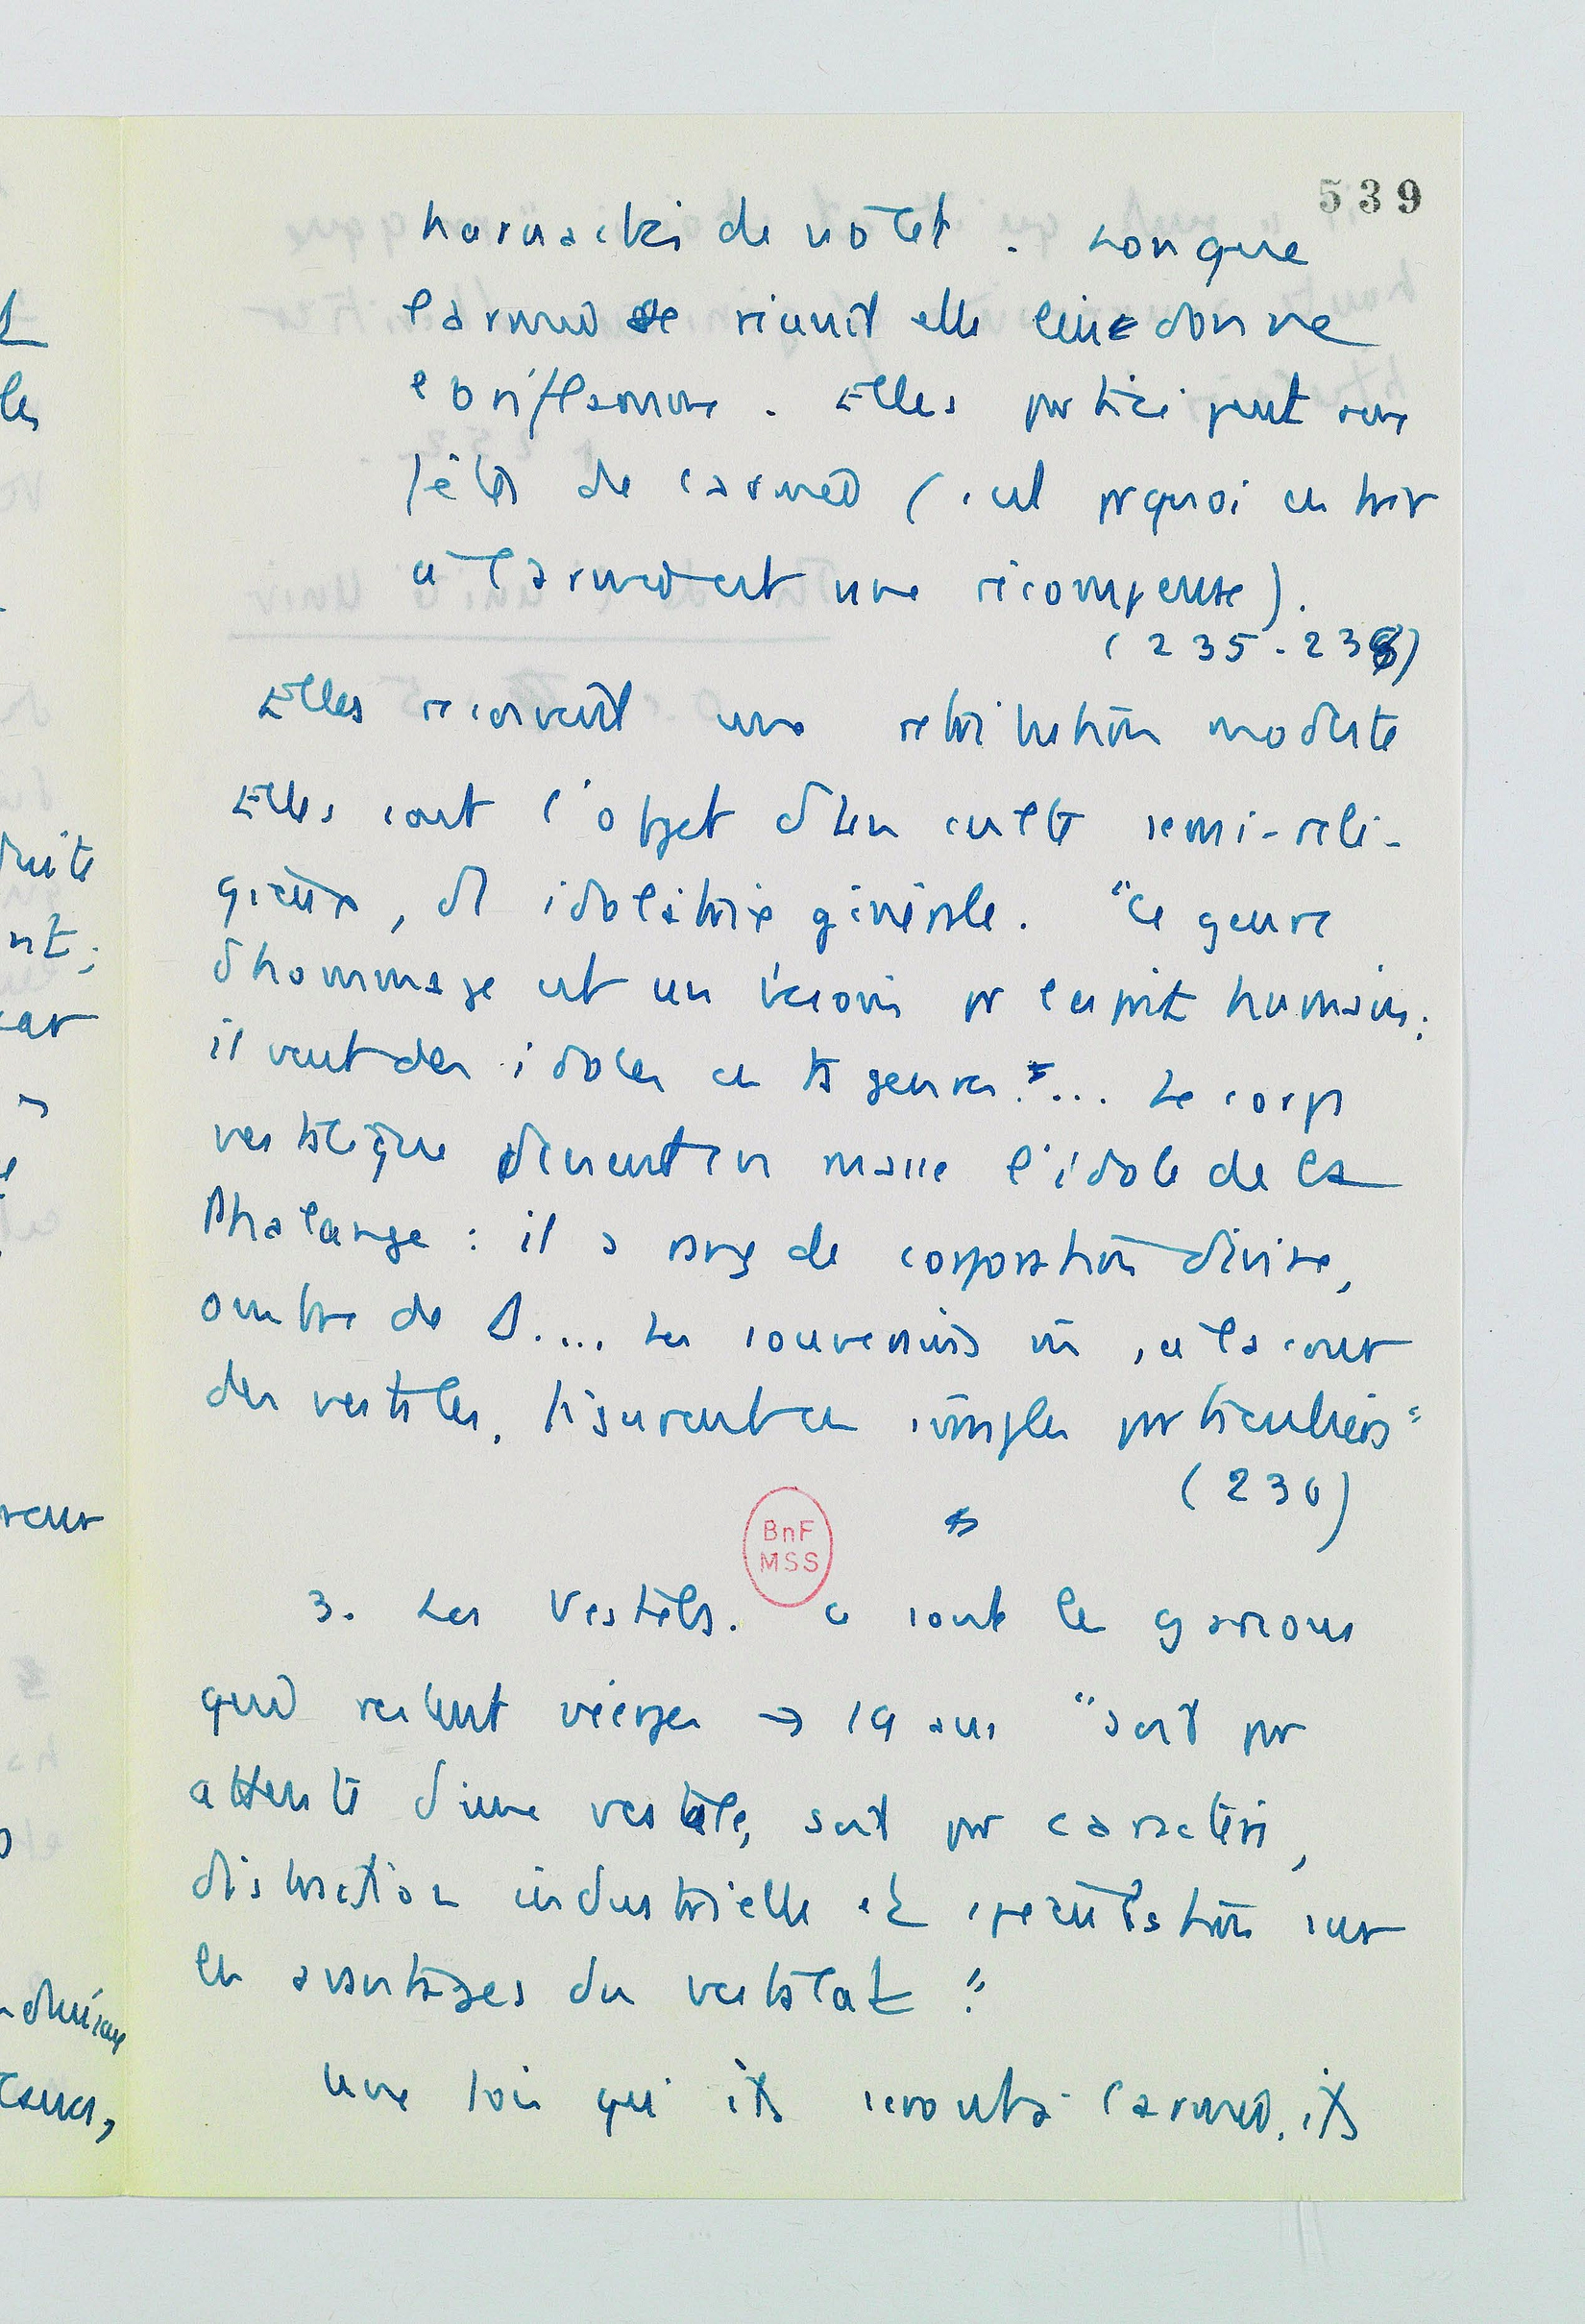 539
harnachés de violet. Lorsque
l'armée se réunit elle leur donne
l'oriflamme. Elles participent aux
fêtes de l'armée (c'est prquoi entrer
à l'armée est une récompense).
(235-236)
Elles reçoivent une rétribution modeste
Elles sont l'objet d'un culte semi-reli-
gieux, d'idolâtrie générale. "Ce genre
d'hommage est un besoin pr l'esprit humain;
il veut des idoles en ts genres"... Le corps
vestalique devient en masse l'idole de la
Phalange : il a rang de corporation divine,
ombre de D.... Les souverains m̂, à la cour
des vestales, figurent en simples particuliers"
(236)
3. Les Vestels. Ce sont les garçons
qui restent vierges → 19 ans "soit pr
attente d'une vestale, soit pr caractère,
distraction industrielle et spéculation sur
les avantages du vestalat"
Une fois qu'ils l'armée, ils
BnF
MSS